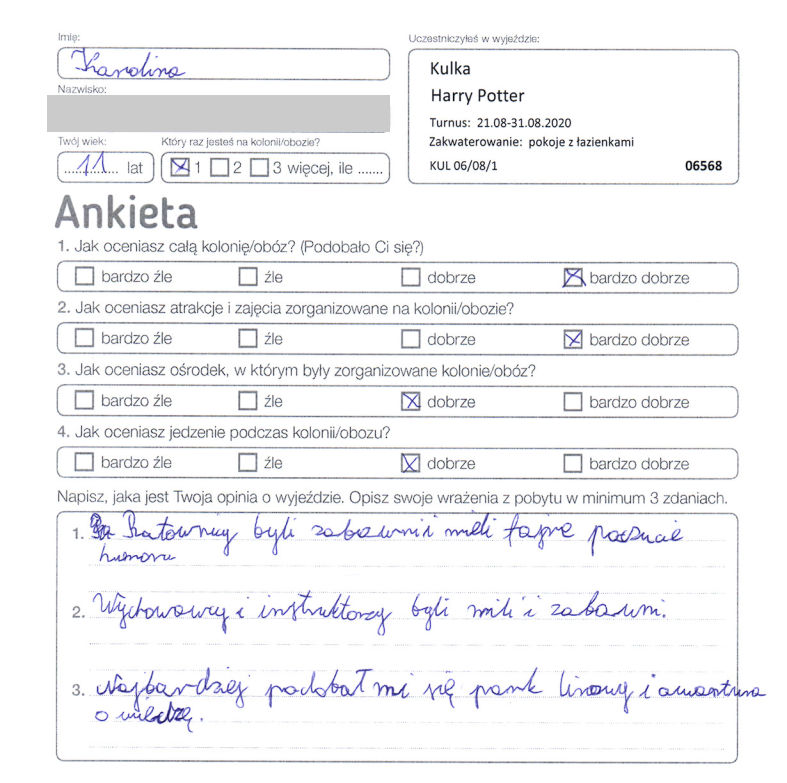 Imię:
Karolina
Uczestniczyłeś w wyjeździe:
Kulka
Harry Potter
Turnus: 21.08-31.08.2020
Zakwaterowanie: pokoje z łazienkami
KUL 06/08/1 06568
Nazwisko:
Twój wiek:
11 lat
Który raz jesteś na kolonii/obozie?
1 2 3 więcej, ile .......
Ankieta
1. Jak oceniasz całą kolonię/obóz? (Podobało Ci się?)
bardzo źle źle dobrze bardzo dobrze
2. Jak oceniasz atrakcje i zajęcia zorganizowane na kolonii/obozie?
bardzo źle źle dobrze bardzo dobrze
3. Jak oceniasz ośrodek, w którym były zorganizowane kolonie/obóz?
bardzo źle źle dobrze bardzo dobrze
4. Jak oceniasz jedzenie podczas kolonii/obozu?
bardzo źle źle dobrze bardzo dobrze
Napisz, jaka jest Twoja opinia o wyjeździe. Opisz swoje wrażenia z pobytu w minimum 3 zdaniach.
1. Ratownicy byli zabawni i mieli fajne poczucie
humoru
2. Wychowawcy i instruktorzy byli mili i zabawni.
3. Najbardziej podobał mi się park linowy i
o